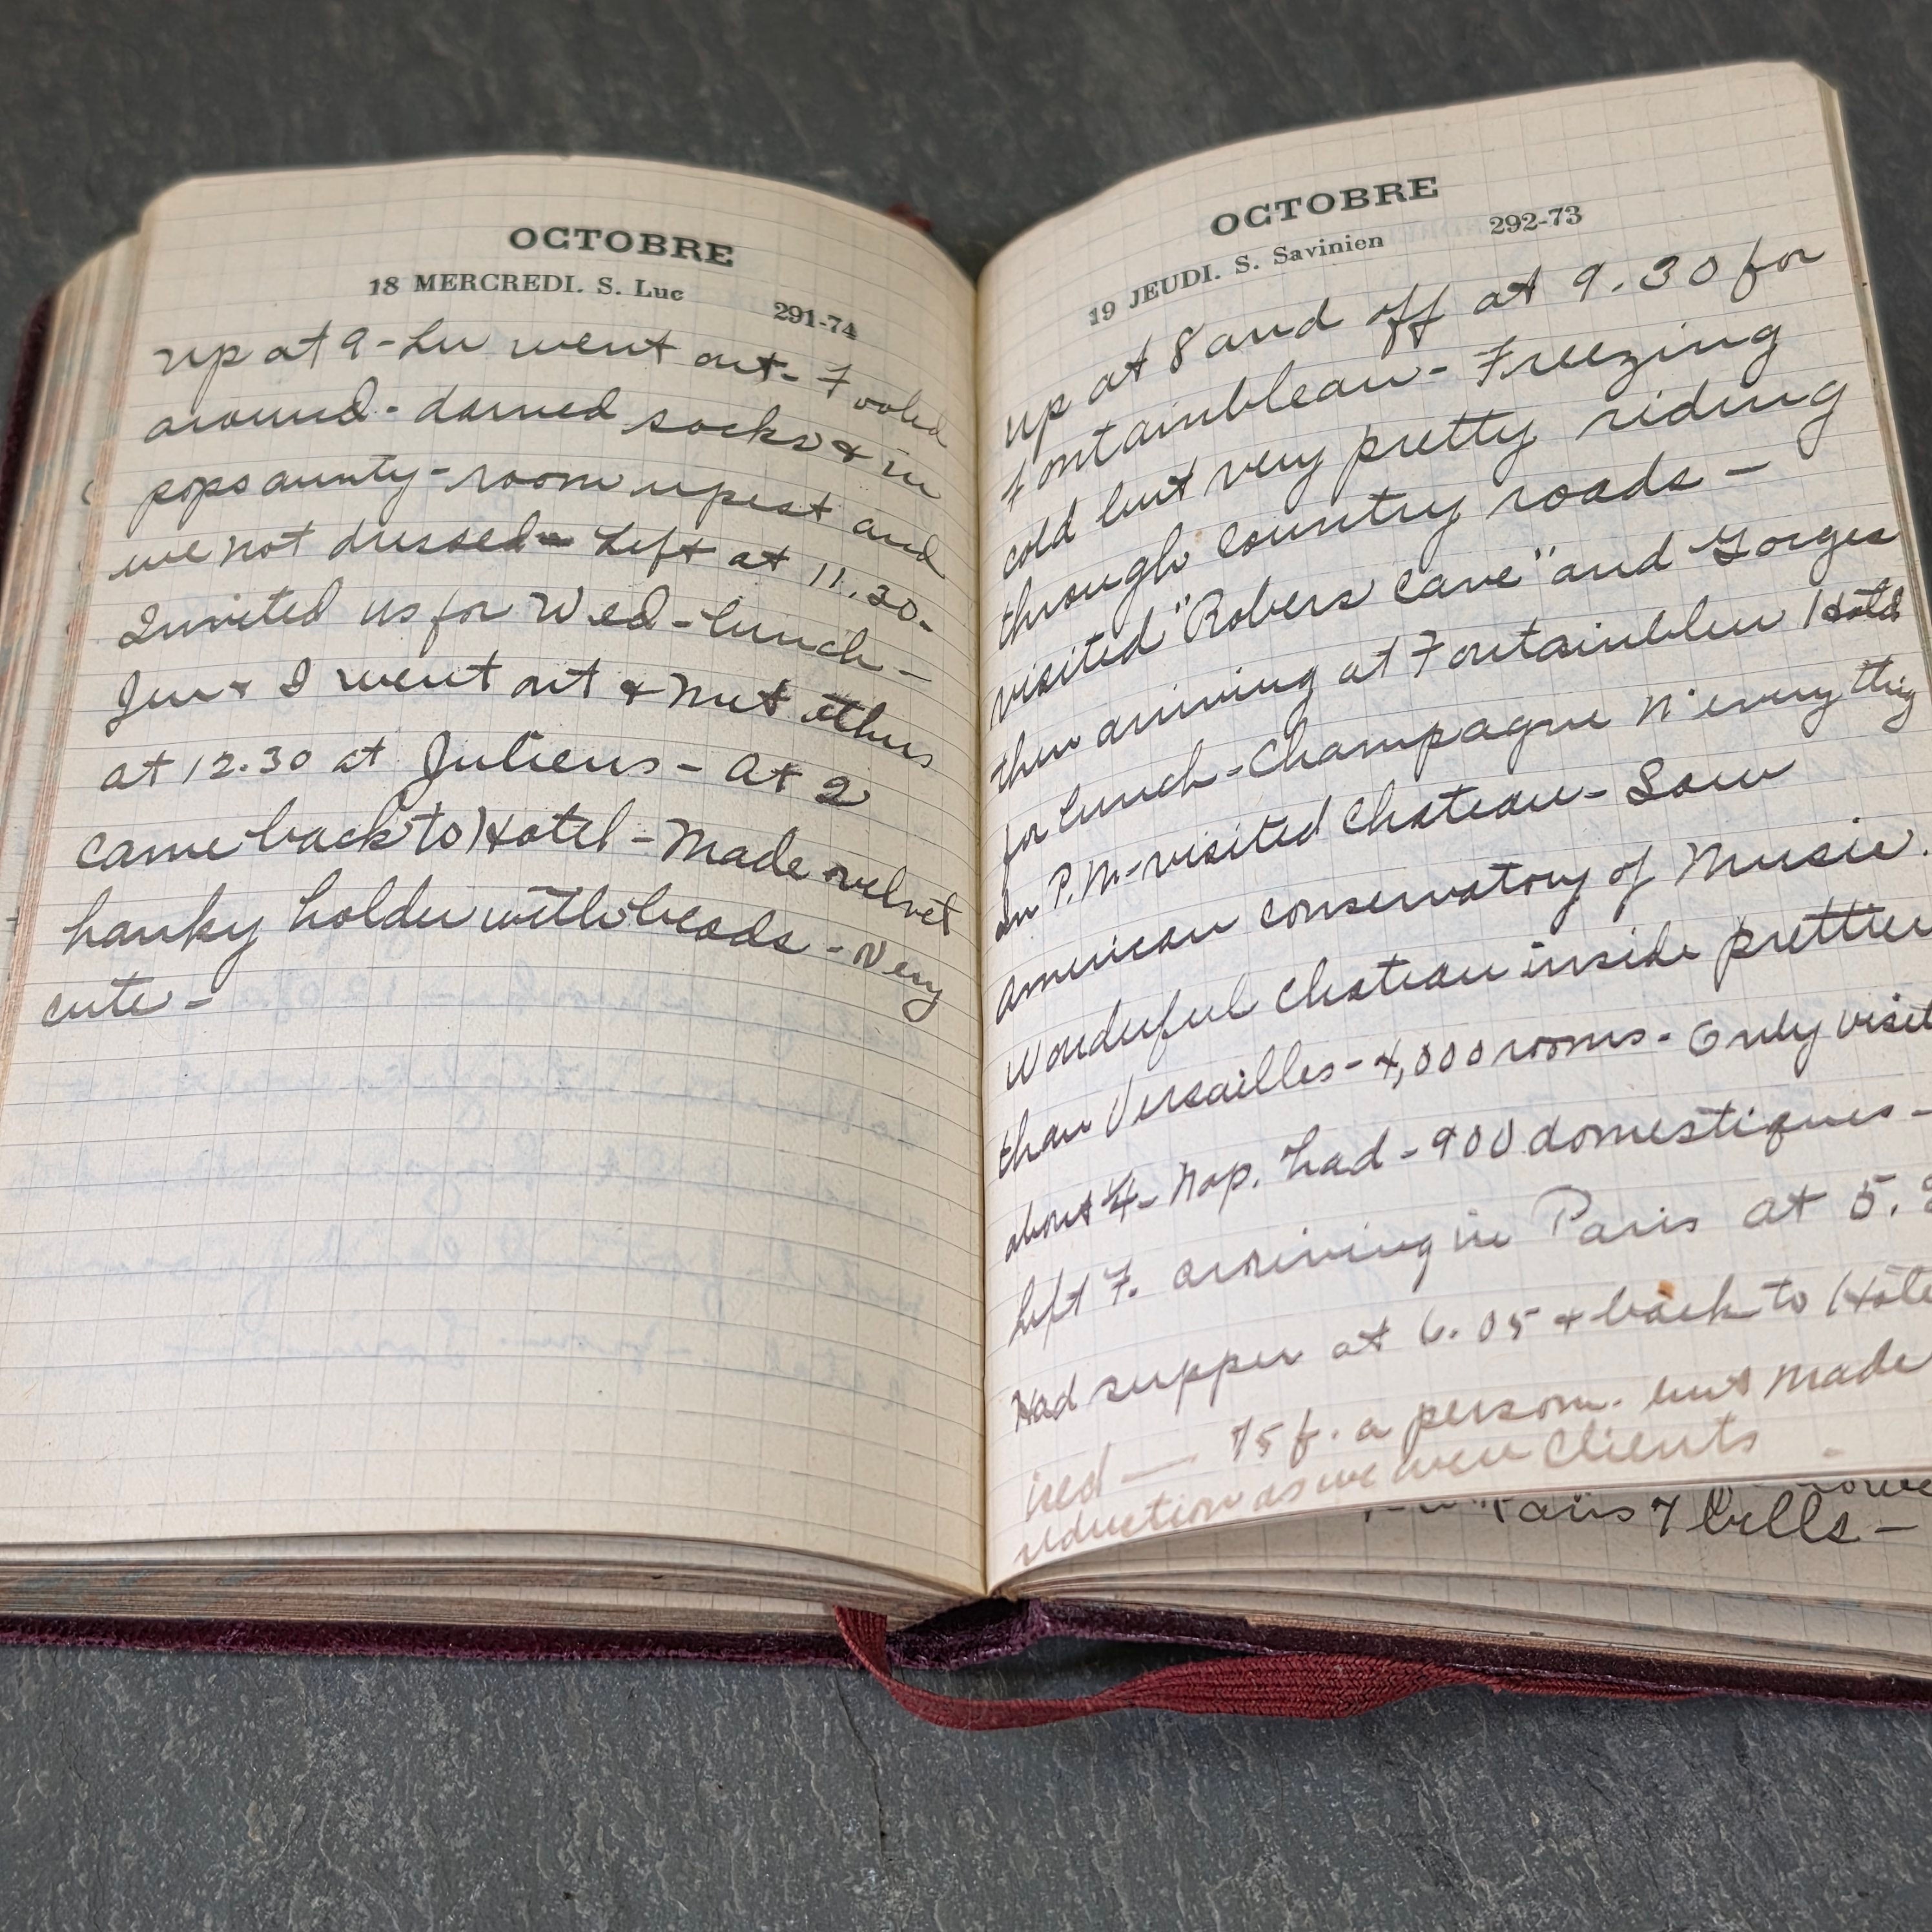 OCTOBRE
18 MERCREDI. S. Luc
291-74
up at 9 - Lu went out - Fooled
around - darned socks & in
pops aunty - room upset and
we not dressed - Left at 11.30 -
Invited us for Wed - lunch -
Jen & I went out & met others
at 12.30 at Juliens - At 2
came back to Hotel - Made velvet
hanky holder with beads - Very
cute -
OCTOBRE
19 JEUDI. S. Savinien
292-73
up at 8 and off at 9.30 for
Fontainbleau - Freezing
cold but very pretty riding
through country roads -
visited "Robers Cave" and Gorges
then arriving at Fontainbleu Hotel
for lunch - Champagne n'everything
In P.M. - visited Chateau - Saw
American conservatory of Music.
Wonderful Chateau inside prettier
than Versailles - 4,000 rooms - Only visit
about 4 - Nap. had - 900 domestiques -
Left F. arriving in Paris at 5.
Had supper at 6.05 & back to Hote
ired — 75 f. a person. but made
reduction as we were Clients -
Paris 7 bells -